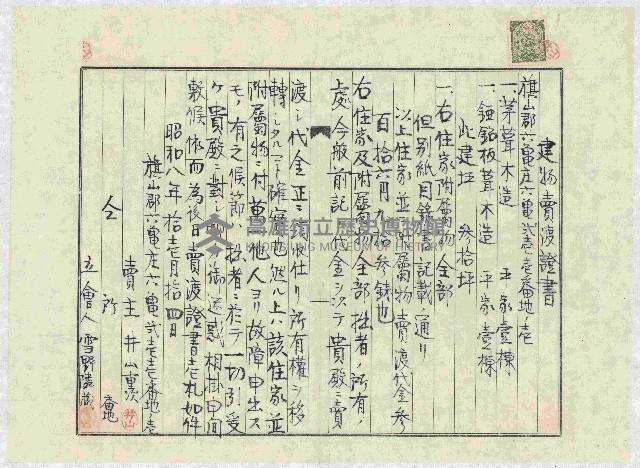 建物賣渡證書
旗山郡六龜庄六龜弍壱壱番地ノ壱
一、茅葺木造 平家壹棟
一、鉦鉛板葺木造 平家壹棟
此建坪 參拾坪
一、右住家附屬物全部
但別紙目錄書記載ノ通リ
以上住家並ニ附屬物賣渡代金參
百拾六円九拾參錢也
右住家及附屬物全部拙者ノ所有ノ
處今般前記ノ代金ヲ以テ貴殿ニ賣
渡シ代金正ニ領收仕リ所有權ヲ移
轉シタルコト確實也然ル上ハ該住家並
附屬物ニ付萬一他人ヨリ故障申出ス
モノ有之候節ハ拙者ニ於テ一切引受
ケ貴殿ニ對シ聊モ御迷惑相掛申間
敷候依而為後日賣渡證書壱札如件
昭和八年拾壱月拾四日
旗山郡六龜庄六龜弍壱壱番地ノ壱
賣主 井山
井山
仝所 番地
立會人 雪野
高雄市立歷史博物館
KAOHSIUNG MUSEUM OF HISTORY